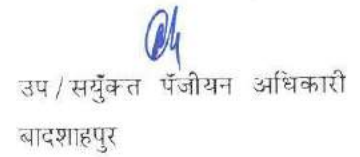 उप / सयुँक्त पँजीयन अधिकारी
बादशाहपुर